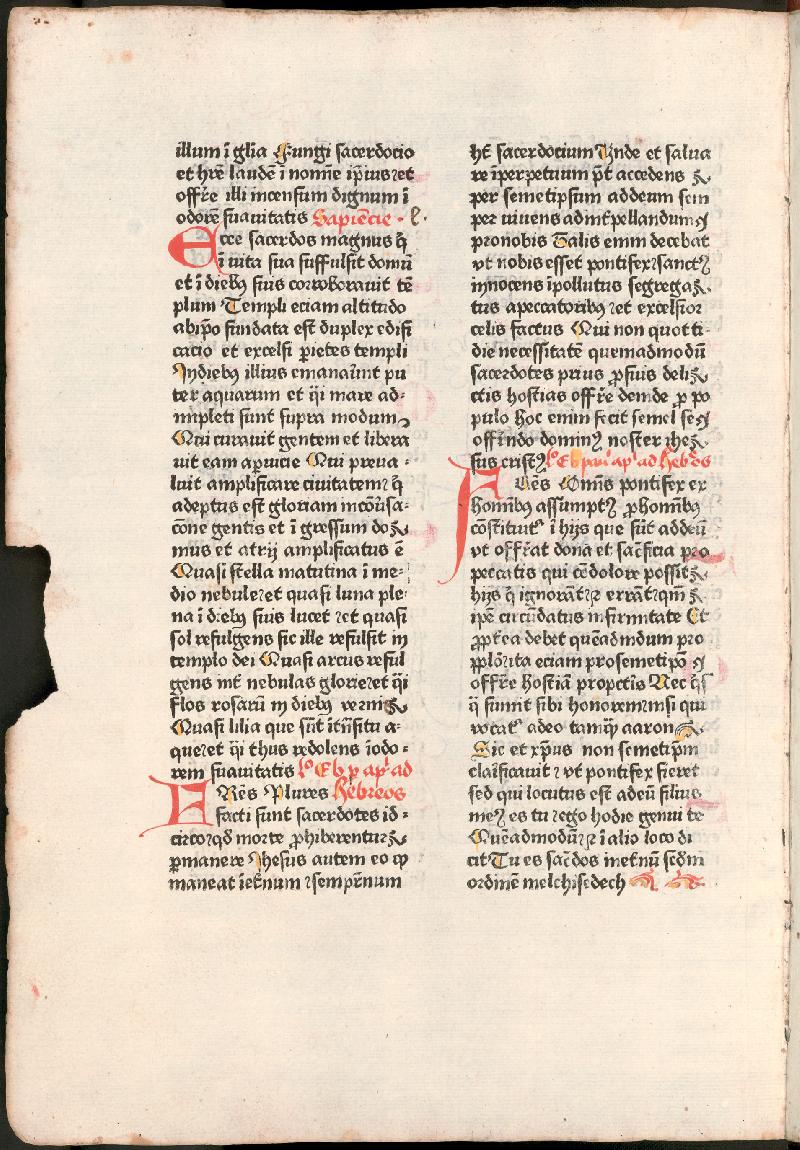 illum ī gl̄ia Fungi sacerdocio
et hr̄e laudē ī nomīe ip̄ius ⁊ et
offr̄e illi incensum dignum ī
odorē suauitatis Sapiēcie · L ·
Ecce sacerdos magnus q̄
ī uita sua suffulsit domū
et ī diebꝰ suis corroborauit tē
plum Templi eciam altitudo
abip̄o fundata est duplex edifi
cacio et excelsi ꝑietes templi
Indiebꝰ illius emanaūnt pu
ter aquarum et q̄i mare ad-
impleti sunt supra modum
Qui curauit gentem et libera
uit eam aꝑuicie Qui preua-
luit amplificare ciuitatem ⁊ q̄
adeptus est gloriam incōūsa-
cōne gentis et ī gressum do
mus et atrij amplificatus ē
Quasi stella matutina ī me-
dio nebule ⁊ et quasi luna ple
na ī diebꝰ suis lucet ⁊ et quasi
sol refulgens sic ille refulsit in
templo dei Quasi arcus reful
gens int̄ nebulas glorie ⁊ et q̄i
flos rosarū in diebꝰ vernis
Quasi lilia que sūt ītn̄situ a-
que ⁊ et q̄i thus redolens īodo-
rem suauitatis lꝰ Eb p apꝰ ad
FRēs Plures hebreos
facti sunt sacerdotes id-
circo ⁊ qđ morte ꝓhiberentur
ꝑmanere Jhesus autem eo ꝙ
maneat īet̄num ⁊ sempr̄num
ht̄ sacerdocium Vnde et salua
re īperpetuum pt̄ accedens
per semetipsum addeum sem
per uiuens adint̄pellandum
pronobis Talis enim decebat
vt nobis esset pontifex ⁊ sanctꝰ
innocens īpollutus segrega
tus apeccatoribꝰ ⁊ et excelsior
celis factus Qui non quot ti-
die necessitatē quemadmodū
sacerdotes prius ꝓsuis deli
ctis hostias offr̄e deinde ꝓ po
pulo hoc enim fecit semel se
offr̄ndo dominꝰ noster ihe
sus cristꝰ lꝰ Eb pauꝰ apꝰ ad hebr̄os
FRēs Omīs pontifex ex
homībꝰ assumptꝰ ꝓhomībꝰ
cōstituitꝰ ī hijs que sūt addeū
vt offr̄at dona et sac̄ficia pro
peccatis qui cōdolore possit
hijs q̄ ignorāt ⁊ errāt ⁊ qm̄
ip̄e circūdatus infirmitate Et
ꝓpt̄ea debet quēadmdum pro
pplō ⁊ ita eciam prosemetip̄o
offr̄e hostiā propctīs Nec q̄s
q̄ sumit sibi honorem nisi qui
vocatꝰ adeo tamq̄ aaron
Sic et xp̄us non semetip̄m
clarificauit ⁊ vt pontifex fieret
sed qui locutus est adeū filius
meꝰ es tu ⁊ ego hodie genui te
Quēadmodū ⁊ ī alio loco di
cit Tu es sac̄dos inet̄nū scd̄m
ordinē melchisedech